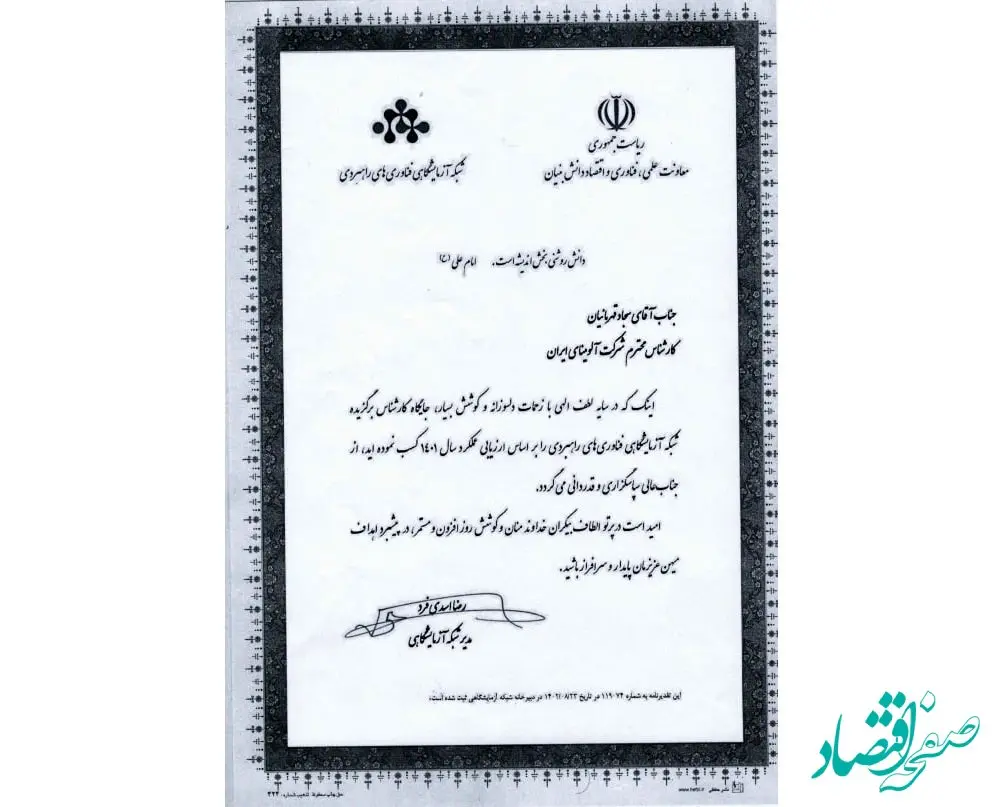 ریاست جمهوری
معاونت علمی، فناوری و اقتصاد دانش بنیان
شبکه آزمایشگاهی فناوری‌های راهبردی
دانش روشنی بخش اندیشه است. امام علی (ع)
جناب آقای سجاد قهرمانیان
کارشناس محترم شرکت آلومینای ایران
اینک که در سایه لطف الهی با زحمات دلسوزانه و کوشش بسیار، جایگاه کارشناس برگزیده
شبکه آزمایشگاهی فناوری‌های راهبردی را بر اساس ارزیابی عملکرد سال ۱۴۰۱ کسب نموده اید، از
جناب‌عالی سپاسگزاری و قدردانی می گردد.
امید است در پرتو الطاف بیکران خداوند منان و کوشش روز افزون و مستمر، در پیشبرد اهداف
میهن عزیزمان پایدار و سرافراز باشید.
رضا اسدی فرد
مدیر شبکه آزمایشگاهی
این تقدیرنامه به شماره ۱۱۹۰۷۴ در تاریخ ۱۴۰۲/۰۸/۲۳ در دبیرخانه شبکه آزمایشگاهی ثبت شده است.
حق چاپ محفوظ
تذهیب شماره: ۴۲۲
صفحه اقتصاد